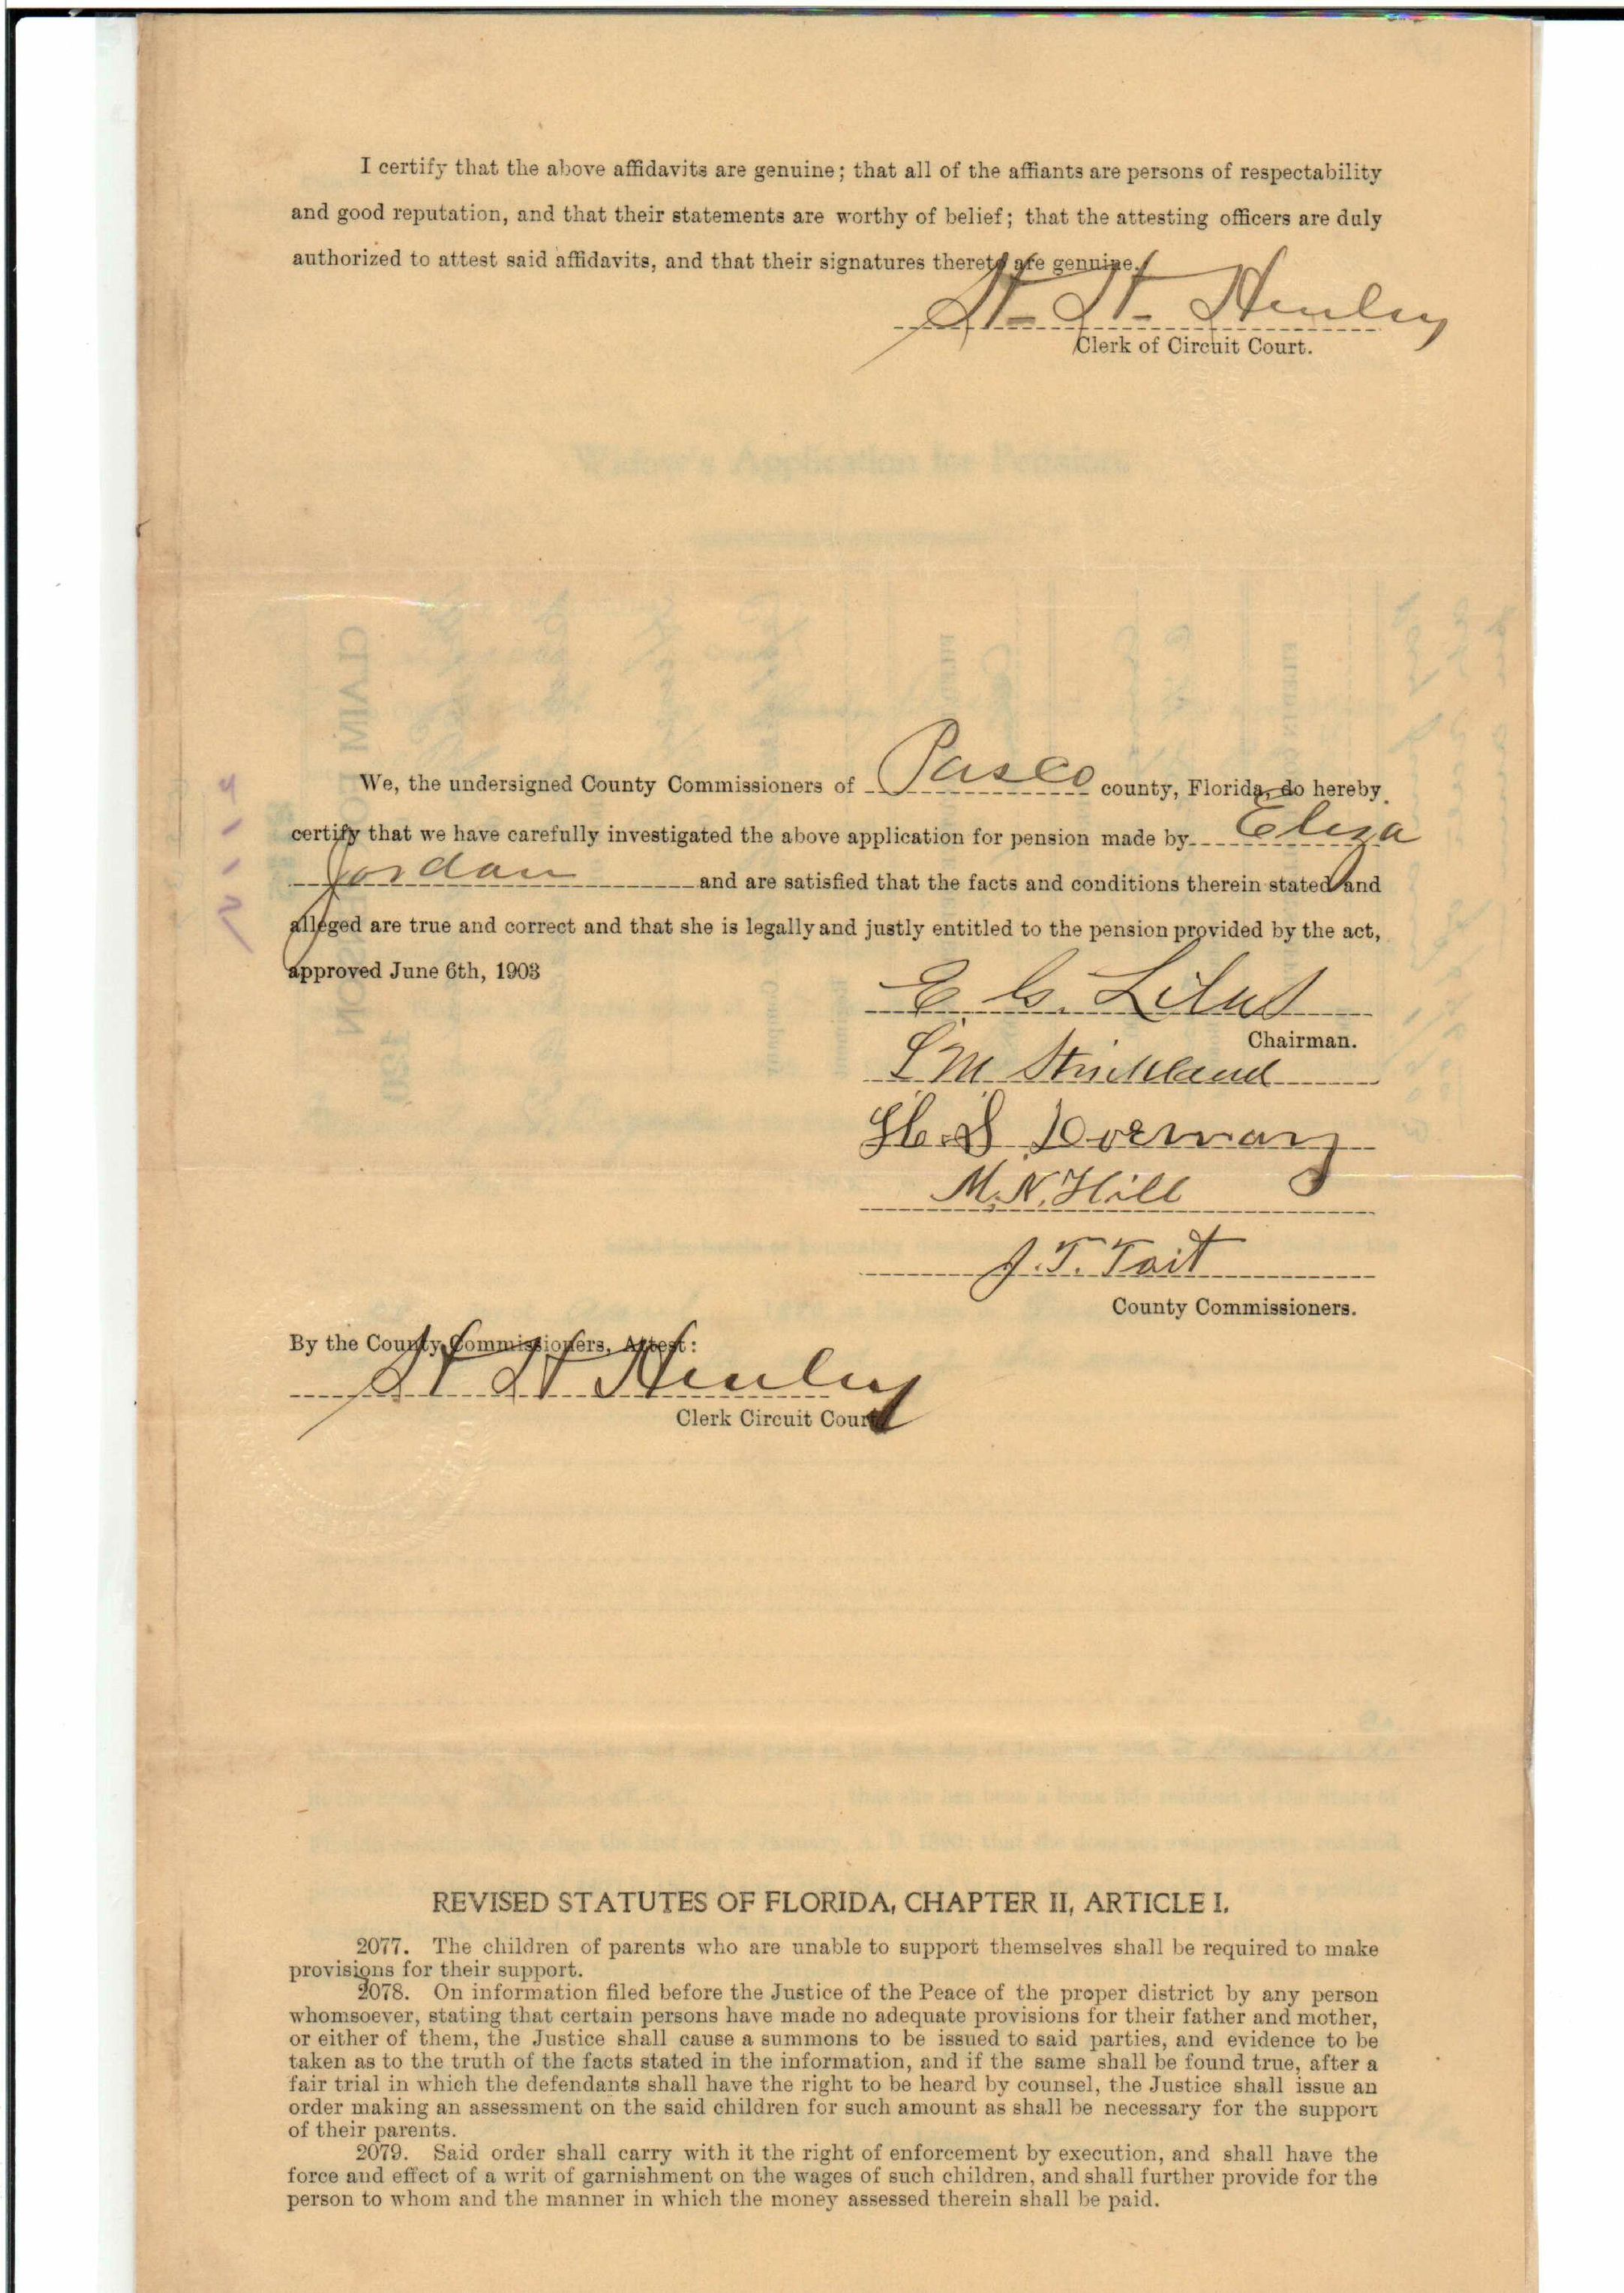 I certify that the above affidavits are genuine; that all of the affiants are persons of respectability
and good reputation, and that their statements are worthy of belief; that the attesting officers are duly
authorized to attest said affidavits, and that their signatures thereto are genuine.
Henley
Clerk of Circuit Court.
Widow's Application for Pension
We, the undersigned County Commissioners of Pasco county, Florida, do hereby
certify that we have carefully investigated the above application for pension made by Eliza
Jordan and are satisfied that the facts and conditions therein stated and
alleged are true and correct and that she is legally and justly entitled to the pension provided by the act,
approved June 6th, 1903
E. G. Liles
Chairman.
S M Strickland
Dorman
M. N. Hill
J. T. Tait
County Commissioners.
By the County Commissioners, Attest:
Henley
Clerk Circuit Court
REVISED STATUTES OF FLORIDA, CHAPTER II, ARTICLE I.
2077. The children of parents who are unable to support themselves shall be required to make
provisions for their support.
2078. On information filed before the Justice of the Peace of the proper district by any person
whomsoever, stating that certain persons have made no adequate provisions for their father and mother,
or either of them, the Justice shall cause a summons to be issued to said parties, and evidence to be
taken as to the truth of the facts stated in the information, and if the same shall be found true, after a
fair trial in which the defendants shall have the right to be heard by counsel, the Justice shall issue an
order making an assessment on the said children for such amount as shall be necessary for the support
of their parents.
2079. Said order shall carry with it the right of enforcement by execution, and shall have the
force and effect of a writ of garnishment on the wages of such children, and shall further provide for the
person to whom and the manner in which the money assessed therein shall be paid.